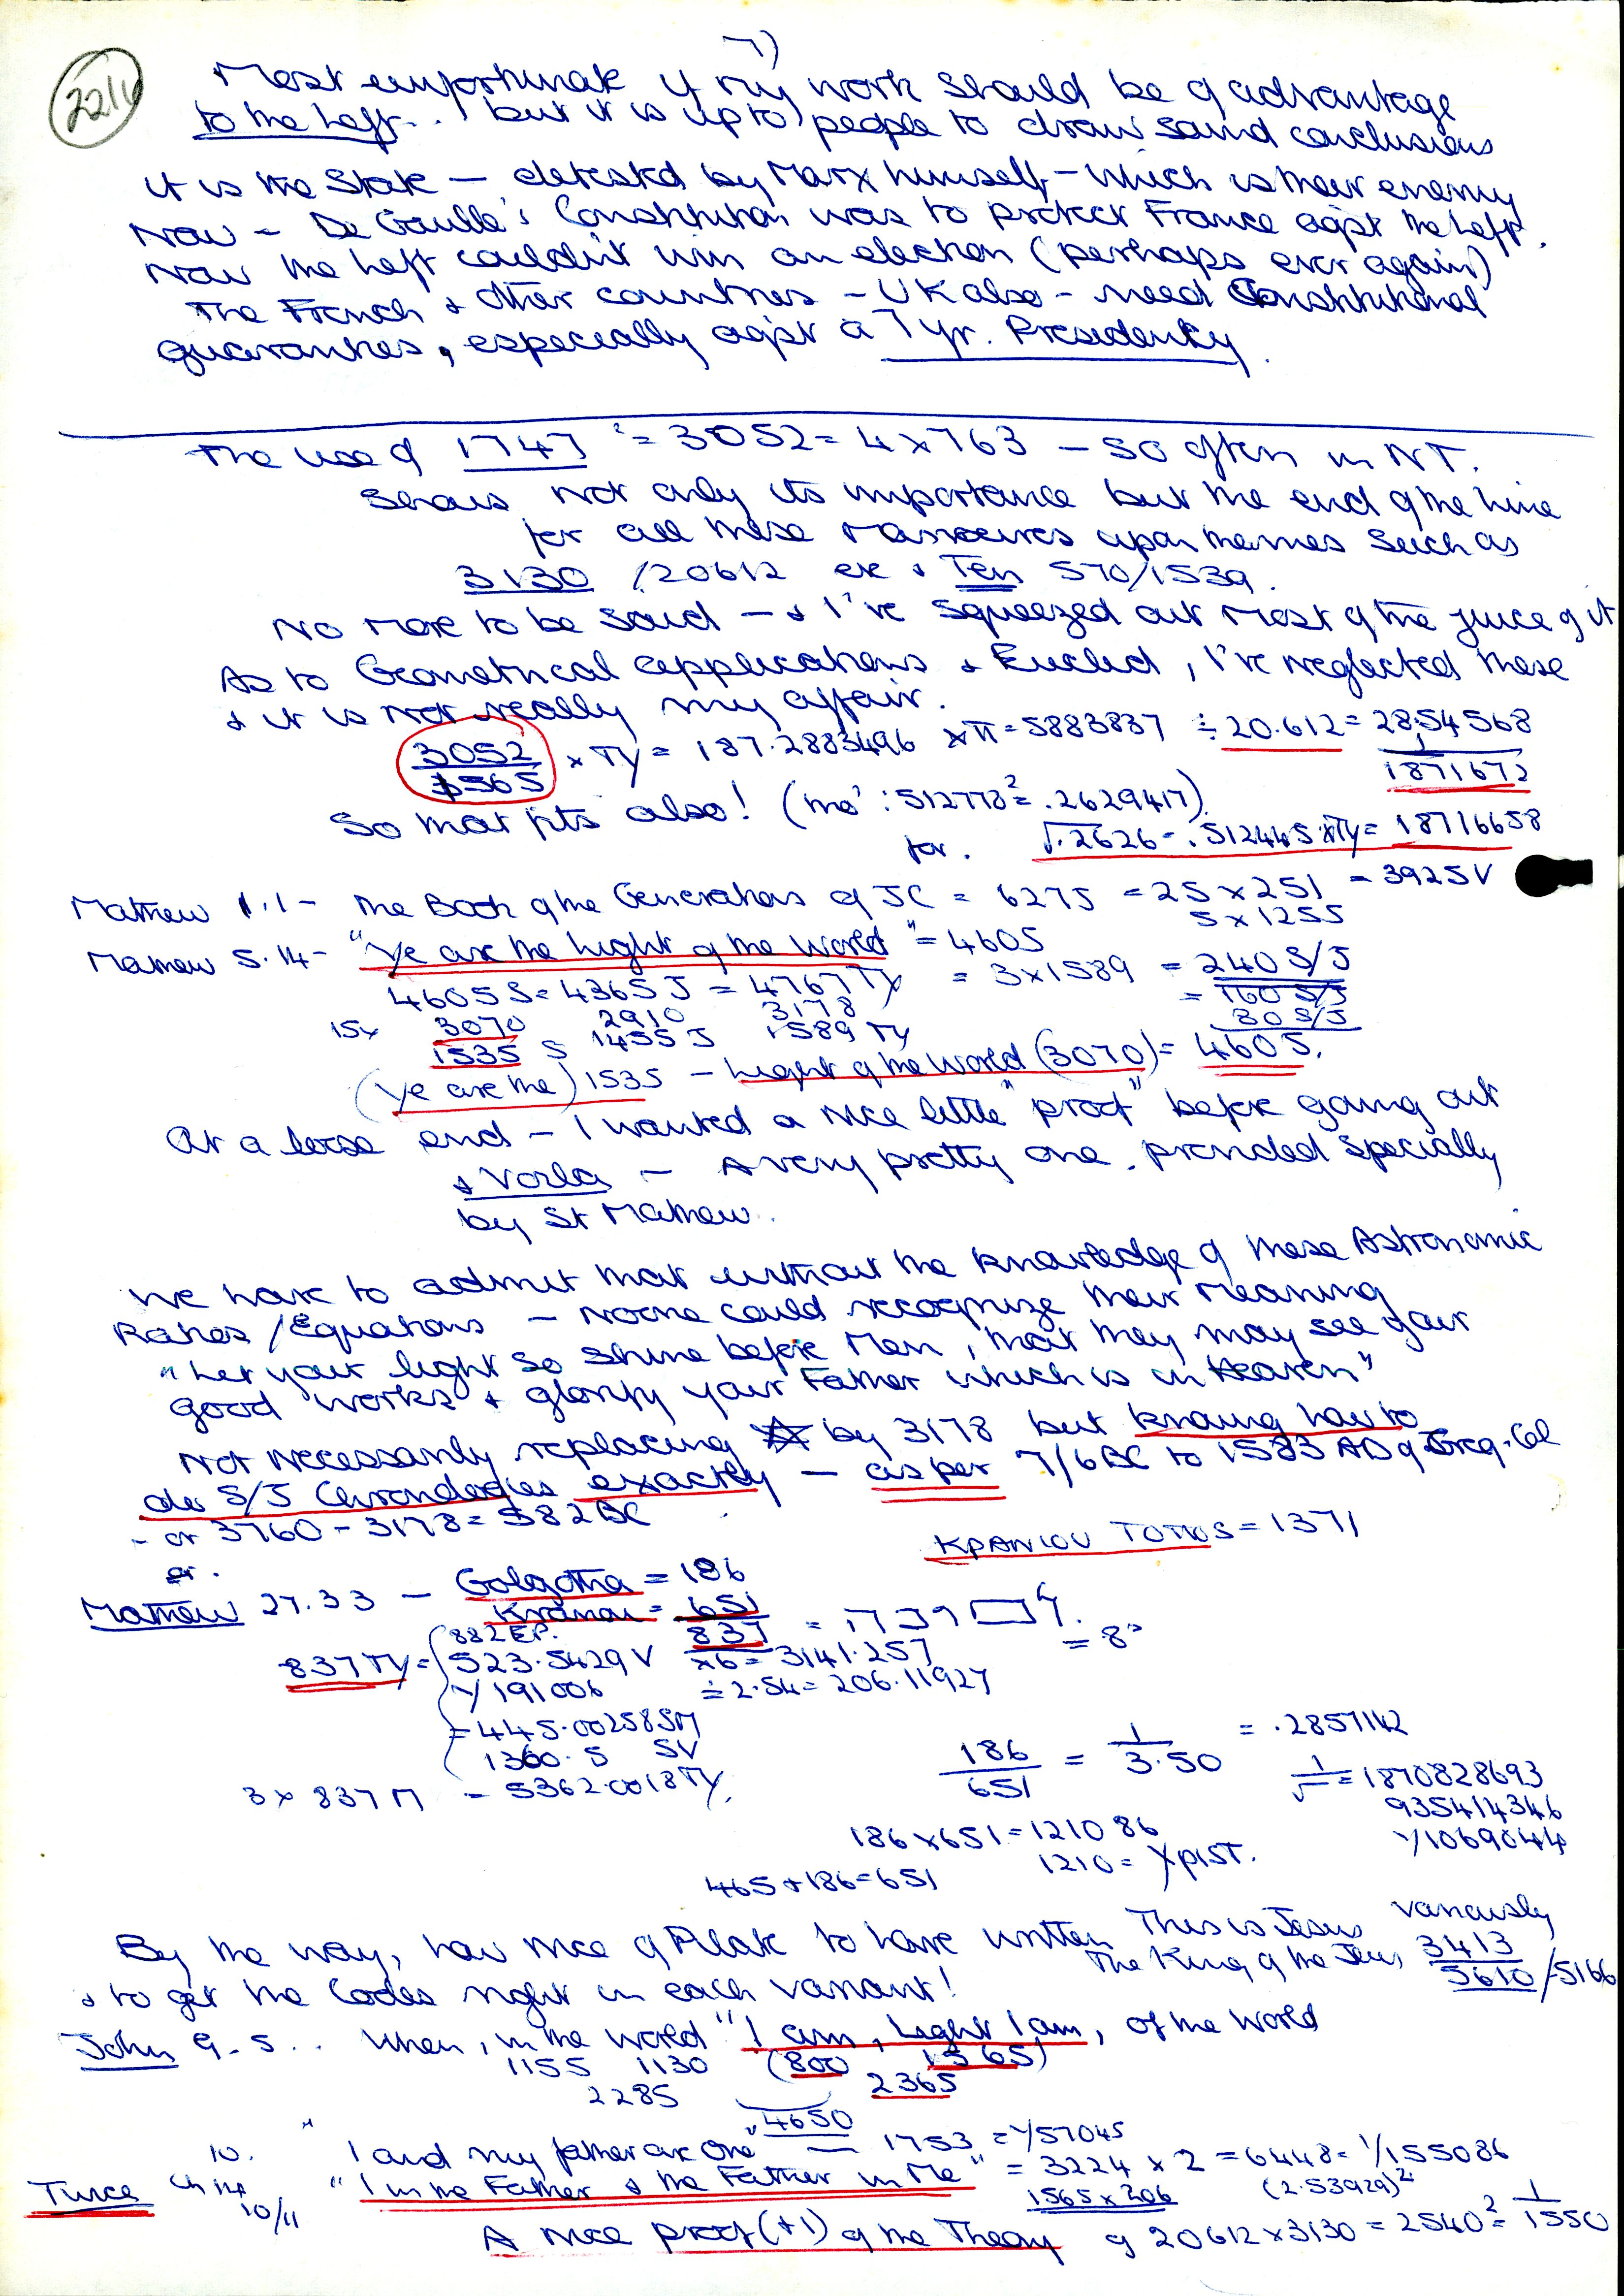 7)
Most unfortunate if my work should be of advantage
to the Left... but it is up to people to draw sound conclusions
it is the State — detested by Marx himself — which is their enemy
Now – De Gaulle's Constitution was to protect France agst the Left.
Now the Left couldn't win an election (perhaps ever again)
The French & other countries – UK also – need Constitutional
guarantees, especially agst a 7 yr. Presidency.
The use of 1747² = 3052 = 4 x 763 – so often in NT.
Shows not only its importance but the end of the line
for all these Manoeuvres upon themes such as
3130 /20612 etc & Ten 570/1539.
No more to be said — & I've squeezed out most of the juice of it
As to Geometrical applications & Euclid, I've neglected these
& it is not really my affair.
3052/1565 x TY = 187.2883496 x π = 5883837 ÷ 20.612 = 28.54568
1871672
So that fits also! (tho' : 512778² = .2629417)
for. √.2626 = .512445 x TY = 18716658
Mathew 1.1 – The Book of the Generations of JC = 6275 = 25 x 251 = 3925V
5 x 1255
Mathew 5.14 – "Ye are the light of the World" = 4605
4605 S = 4365 J = 4767 TY = 3 x 1589 = 240 S/J
3070 2910 3178 = 160 S/J
1535 S 1455 J 1589 TY 80 S/J
(Ye are the) 1535 – Light of the World (3070) = 4605.
At a loose end – I wanted a nice little "proof" before going out
& Voila – A very pretty one, provided specially
by St Mathew.
We have to admit that without the knowledge of these Astronomic
Rates/Equations – noone could recognize their meaning
"Let your light so shine before Men, that they may see your
good works & glorify your Father which is in Heaven"
Not necessarily replacing by 3178 but knowing how to
do S/J Chronologies exactly — as per 7/6 BC to 1583 AD of Greg. Cal
– or 3760 – 3178 = 582 BC
or.
ΚΡΑΝΙΟΥ ΤΟΠΟS = 1371
Mathew 27.33 – Golgotha = 186
Kraniou = 651
882 EP. 837 = 8²
837 TY = 523.5429 V x6 = 3141.257
Y191006 ÷ 2.54 = 206.11927
= 445.002585M
1360.5 SV
3 x 837 M = 5362.0018 TY.
186/651 = 1/3.50 = .2857142
1/√ = 1870828693
935414346
Y1069044
186 x 651 = 121086
1210 = ΧριST.
465 + 186 = 651
By the way, how nice of Pilate to have written This is Jesus variously
The King of the Jews 3413
& to get the Codes right in each variant! 5610/5166
John 9.5 .. When, in the world "I am, Light I am, of the World
1155 1130 (800 1565)
2285 2365
4650
10. "I and my father are One" — 1753 = Y57045
Twice Ch 14 10/11 "I in the Father & the Father in Me" = 3224 x 2 = 6448 = 1/155086
1565 x 206 (2.53929)²
A nice proof (+1) of the Theory of 20612 x 3130 = 2540² = 1/1550